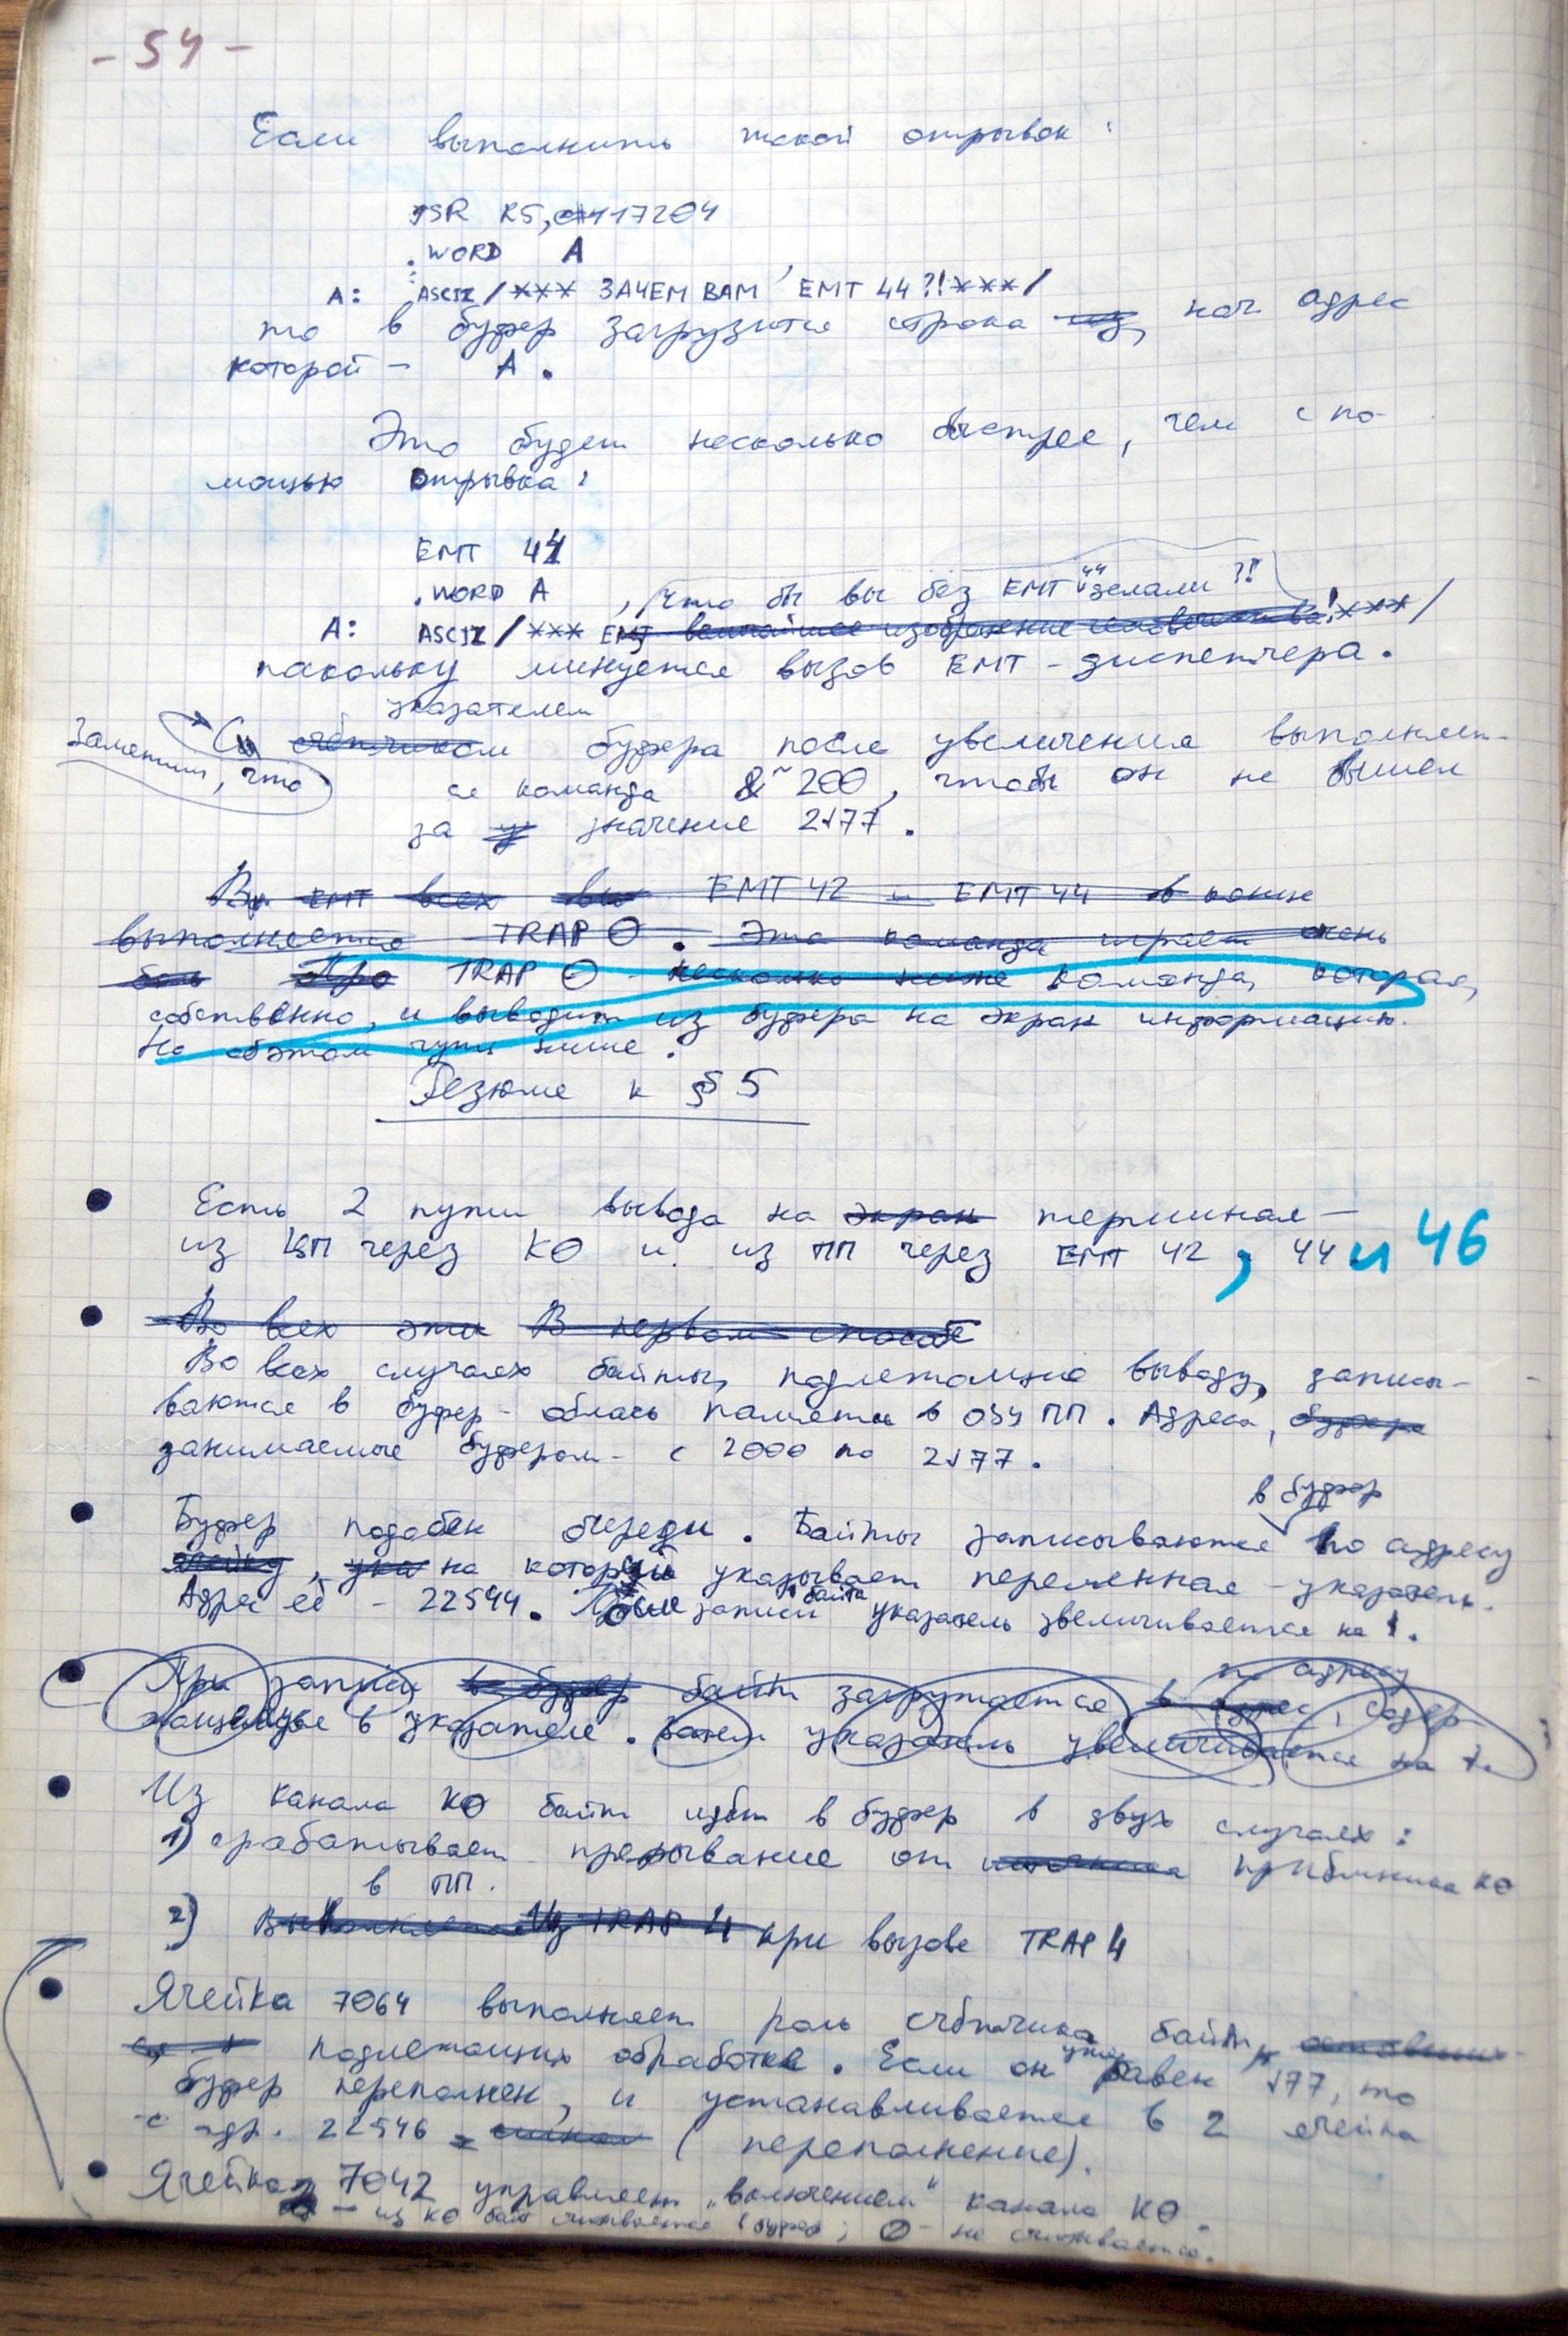 - 54 -
Если выполнить такой отрывок:
JSR R5, @#117204
.WORD A
A: .ASCIZ /*** ЗАЧЕМ ВАМ EMT 44?!***/
то в буфер загрузится строка, нач адрес
которой - A.
Это будет несколько быстрее, чем с по-
мощью отрывка:
EMT 44
.WORD A
, что бы вы без EMT 44 делали?!
A: ASCIZ /*** !***/
пакольку минуется вызов EMT - диспетчера.
указателем
Заметим, что
С буфера после увеличения выполняет-
ся команда &~200, чтобы он не вышел
за значение 2177.
EMT 42 и EMT 44 в конце
выполняется TRAP 0. Эта команда играет очень
Про TRAP 0 - несколько ниже команда, которая,
собственно, и выводит из буфера на экран информацию.
Но об этом чуть ниже.
Резюме к § 5
Есть 2 пути вывода на экран терминал —
из ЦП через К0 и из ПП через EMT 42, 44 и 46
Во всех эти В первом способе
Во всех случаях байты, подлежащие выводу, записы-
ваются в буфер - облась памяти в ОЗУ ПП. Адреса, буфера
занимаемые буфером - с 2000 по 2177.
в буфер
Буфер подобен очереди. Байты записываются по адресу
ячейку, ука на который указывает переменная - указатель.
Адрес её - 22544. После записи байта указатель увеличивается на 1.
по адресу
При записи в буфер байт загружается в адрес, содер-
жащемуся в указателе. Затем указатель увеличивается на 1.
Из канала К0 байт идёт в буфер в двух случаях:
1) срабатывает прерывание от приёмника К0
в ПП.
2) Из TRAP 4 при вызове TRAP 4
Ячейка 7064 выполняет роль счётчика байт,
подлежащих обработке. Если он уже равен 177, то
буфер переполнен, и устанавливается в 2 ячейка
с адр. 22546 (переполнение).
Ячейка 7042 управляет „включением“ канала К0.
— из К0 байт считывается в буфер; 0 - не считывается.